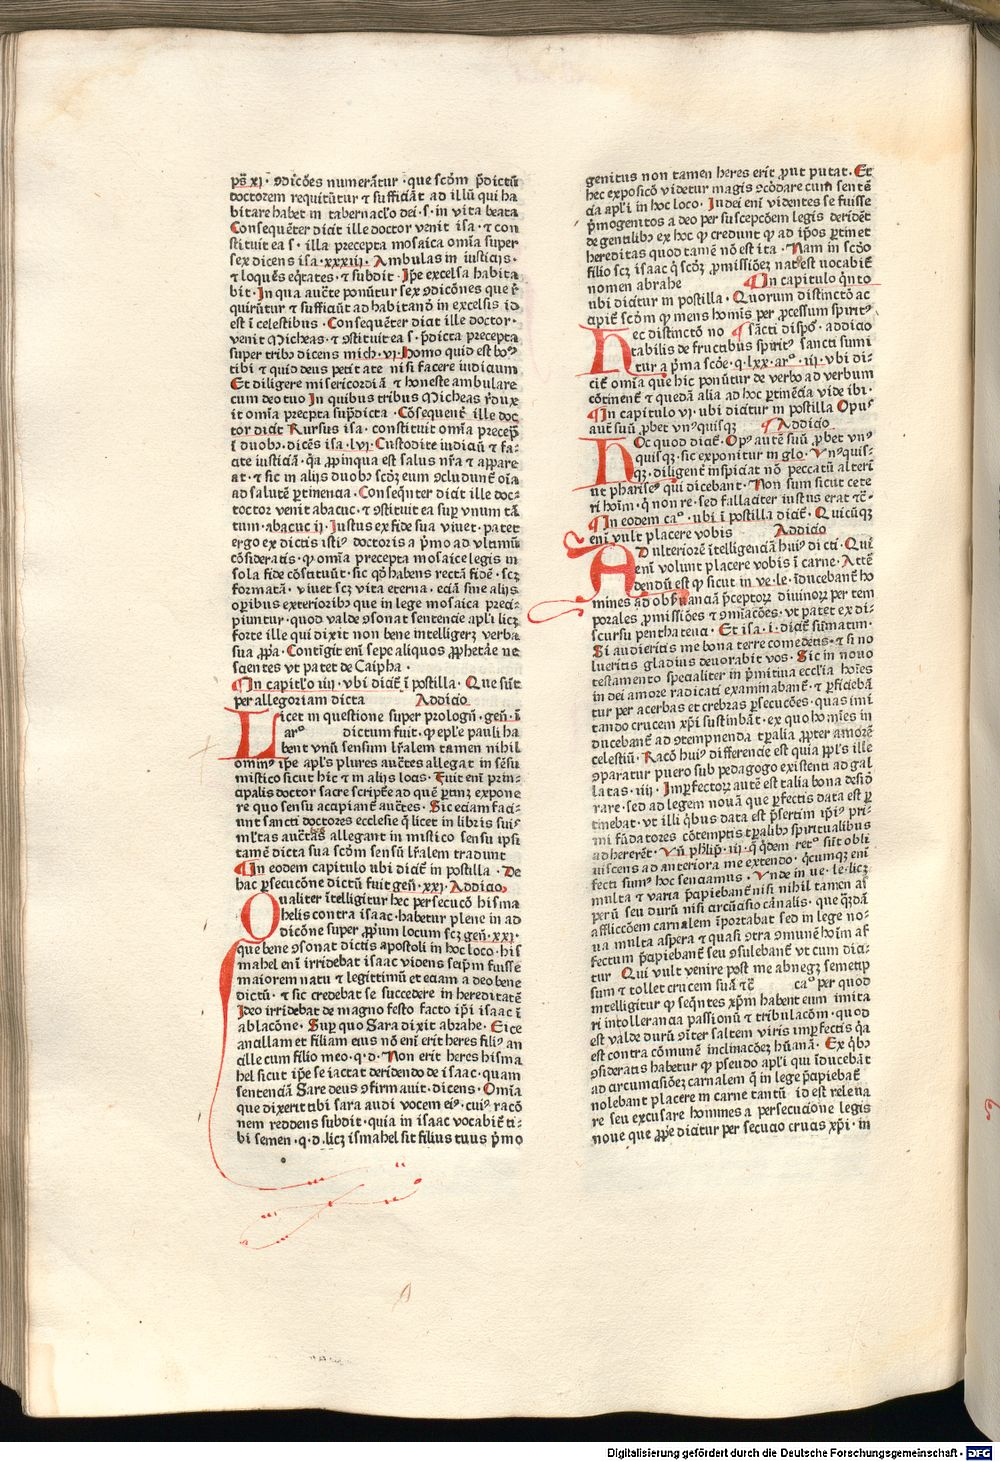 ps̄ xj · ꝯdic̄oēs numerātur · que scd̄m p̄dictū
doctorem requirūtur ⁊ sufficiāt ad illū qui ha
bitare habet in tabernacl̄o dei · s · in vita beata
Consequēter dicit ille doctor venit isa · ⁊ con
stituit ea s · illa precepta mosaica om̄ia super
sex dicens isa · xxxiij · Ambulas in iusticijs ·
⁊ loquēs eq̄tates · ⁊ subdit · Ip̄e excelsa habita
bit · In qua auct̄e ponūtur sex ꝯdicōnes que r̄
quirūtur ⁊ sufficiūt ad habitandū in excelsis id
est ī celestibus · Consequēter dicit ille doctor ·
venit Micheas · ⁊ ꝯstituit ea s · p̄dicta precepta
super tribꝰ dicens mich · vj · homo quid est boꝰ
tibi ⁊ quid deus petit a te nisi facere iudicium
Et diligere misericordiā ⁊ honeste ambulare
cum deo tuo In quibus tribus Micheas r̄dux
it om̄ia precepta sup̄dicta · Cōsequent̄ ille doc
tor dicit Rursus isa · constituit om̄ia precep̄
ī duobꝰ · dicēs isa · lvj · Custodite iudiciū ⁊ fa-
cite iusticiā · q̄a ꝓpinqua est salus nr̄a ⁊ appare
at · ⁊ sic in alijs duobꝰ scd̄m eum ꝯcludunt̄ oīa
ad salutē ꝑtinencia · Conseq̄nter dicit ille doc-
toctor venit abacuc · ⁊ ꝯstituit ea suꝑ vnum tā
tum · abacuc ij · Iustus ex fide sua viuet · patet
ergo ex dictis istiꝰ doctoris a p̄mo ad vltimū
cōsideratis · ꝙ om̄ia precepta mosaice legis in
sola fide cōstituūt · sic qd̄ habens rectā fidē · scꝫ
formatā · viuet scꝫ vita eterna · eciā sine alijs
oꝑibus exterioribꝰ que in lege mosaica preci-
piuntur · quod valde ꝯsonat sentencie apl̄i licꝫ
forte ille qui dixit non bene intelligerꝫ verba
sua ꝓp̄a · Contigit enī sepe aliquos ꝓphetāe ne
scientes vt patet de Caipha ·
In capitl̄o iiij · vbi dicit̄ ī postilla · Que sūt
per allegoriam dicta Addicio
Licet in questione super prologū · gen̄ · ī
arº dictum fuit · ꝙ epl̄e pauli ha
bent vnū sensum lr̄alem tamen nihil
ominꝰ ip̄e apl̄s plures auct̄es allegat in sēsu
mistico sicut hic̄ ⁊ in alijs locis · Fuit enī prin-
cipalis doctor sacre scripte ad quē ꝑtinꝫ expone
re quo sensu accipiant̄ auct̄es · Sic eciam faci-
unt sancti doctores ecclesie q̄ licet in libris suiꝰ
ml̄tas auct̄as allegant in mistico sensu ipsi
tamē dicta sua scd̄m sensū lr̄alem tradunt
In eodem capitulo vbi dicit̄ in postilla · De
hac ꝑsecucōne dictū fuit gen̄ · xxj · Addicio
Qualiter ītelligitur hec persecucō hisma
helis contra isaac · habetur plene in ad
dicōne super ꝓpriū locum scꝫ gen̄ · xxj ·
que bene ꝯsonat dictis apostoli in hoc loco · his
mahel enī irridebat isaac videns seip̄m fuisse
maiorem natu ⁊ legittimū et eciam a deo bene
dictū · ⁊ sic credebat se succedere in hereditatē
Ideo irridebat de magno festo facto ip̄i isaac ī
ablacōne · Suꝑ quo Sara dixit abrahe · Eice
ancillam et filiam eius nō enī erit heres filiꝰ an
cille cum filio meo · q · d · Non erit heres hisma
hel sicut ip̄e se iactat deridendo de isaac · quam
sentenciā Sare deus ꝯfirmauit · dicens · Om̄ia
que dixerit tibi sara audi vocem eiꝰ · cuiꝰ racō
nem reddens subdit · quia in isaac vocabit̄ ti-
bi semen · q · d · licꝫ ismahel sit filius tuus p̄mo
genitus non tamen heres erit ꝓut putat · Et
hec exposicō videtur magis ꝯcōdare cum sentē
cia apl̄i in hoc loco · Iudei enī videntes se fuisse
p̄mogenitos a deo per suscepcōem legis deridēt
de gentilibꝰ ex hoc ꝙ credunt ꝙ ad ip̄os ꝑtinet
hereditas quod tamē nō est ita · Nam in scd̄o
filio scꝫ isaac q̄ scd̄m ꝓmissiōeꝫ natꝰ est vocabit̄
nomen abrahe In capitulo q̄nto
ubi dicitur in postilla · Quorum distinctō ac
cipit̄ scd̄m ꝙ mens homīs per ꝓcessum spiritꝰ
Hec distinctō no sācti dispōꝰ · addicio
tabilis de fructibus spiritꝰ sancti sumi
tur a p̄ma scd̄e · q · lxx · arº · iij · vbi di-
cit̄ om̄ia que hic ponūtur de verbo ad verbum
cōtinent̄ ⁊ quedā alia ad hoc ꝑtinēcia vide ibi ·
In capitulo vj · ubi dicitur in postilla Opuꝰ
autē suū ꝓbet vnꝰquisqꝫ Addicio
Hoc quod dicit̄ · Opꝰ autē suū ꝓbet vnꝰ
quisqꝫ · sic exponitur in glo · Vnꝰquis-
qꝫ · diligent̄ inspiciat nō peccatū alteri
ut phariseꝰ qui dicebant · Non sum sicut cete
ri hoīm · q̄ non re · sed fallaciter iustus erat ⁊c̄ ·
In eodem caº · ubi ī postilla dicit̄ · Quicūqꝫ
enī vult placere vobis Addicio
Ad ulteriorē ītelligenciā huiꝰ dicti · Qui
enī volunt placere vobis ī carne · Attē
dendū est ꝙ sicut in ve · le · īducebant̄ ho
mines ad obẜuanciā p̄ceptoꝝ diuinoꝝ per tem
porales ꝓmissiōes ⁊ ꝯminacōes · vt patet ex di-
scursu penthateuci · Et isa · i · dicit̄ sūmatim ·
Si audieritis me bona terre comedetis · ⁊ si no
lueritis gladius deuorabit vos · Sic in nouo
testamento specialiter in p̄mitiua eccl̄ia hoīes
in dei amore radicati examinabant̄ · ⁊ ꝑficiebā
tur per acerbas et crebras ꝑsecucōes · quas imi
tando crucem xp̄i sustinbāt · ex quo homīes in
ducebant̄ ad ꝯtempnenda tꝑalia ꝓpter amorē
celestiū · Racō huiꝰ differencie est quia ppl̄s ille
ꝯparatur puero sub pedagogo existenti ad gal
latas · iiij · Imꝑfectoꝝ autē est talia bona desid̄
rare · sed ad legem nouā que ꝑfectis data est ꝑ
tinebat · vt illi q̄bus data est p̄sertim ip̄iꝰ pri-
mi fūdatores cōtemptis tꝑalibꝰ spiritualibus
adhererēt · Vn̄ philip̄ · iij · q̄ q̄dem retº sūt obli
uiscens ad anteriora me extendo · q̄cumqꝫ enī
fecti sumꝰ hoc senciamus · Vnde in ve · le · licꝫ
multa ⁊ varia p̄cipiebant̄ nisi nihil tamen as
perū seu durū nisi circūcisio carnalis · que q̄ꝫdā
afflicciōem carnalem īportabat sed in lege no-
ua multa aspera ⁊ quasi ꝯtra ꝯmunē hoīm af
fectum p̄cipiebant̄ seu ꝯsulebant̄ vt cum dici-
tur Qui vult venire post me abnegꝫ semetip
sum ⁊ tollet crucem suā ⁊c̄ caº per quod
intelligitur ꝙ seq̄ntes xp̄m habent eum imita
ri intollerancia passionū ⁊ tribulacōm · quod
est valde durū ꝯīter saltem viris imꝑfectis q̄a
est contra cōmunē inclinacōeꝫ hūanā · Ex q̄bꝰ
ꝯsideratis habetur ꝙ pseudo apl̄i qui īducebāt
ad circumcisiōeꝫ carnalem q̄ in lege p̄cipiebat̄
nolebant placere in carne tantū id est relena
re seu excusare homines a persecucione legis
noue que ꝓp̄e dicitur per secucio crucis xp̄i · in
Digitalisierung gefördert durch die Deutsche Forschungsgemeinschaft - DFG